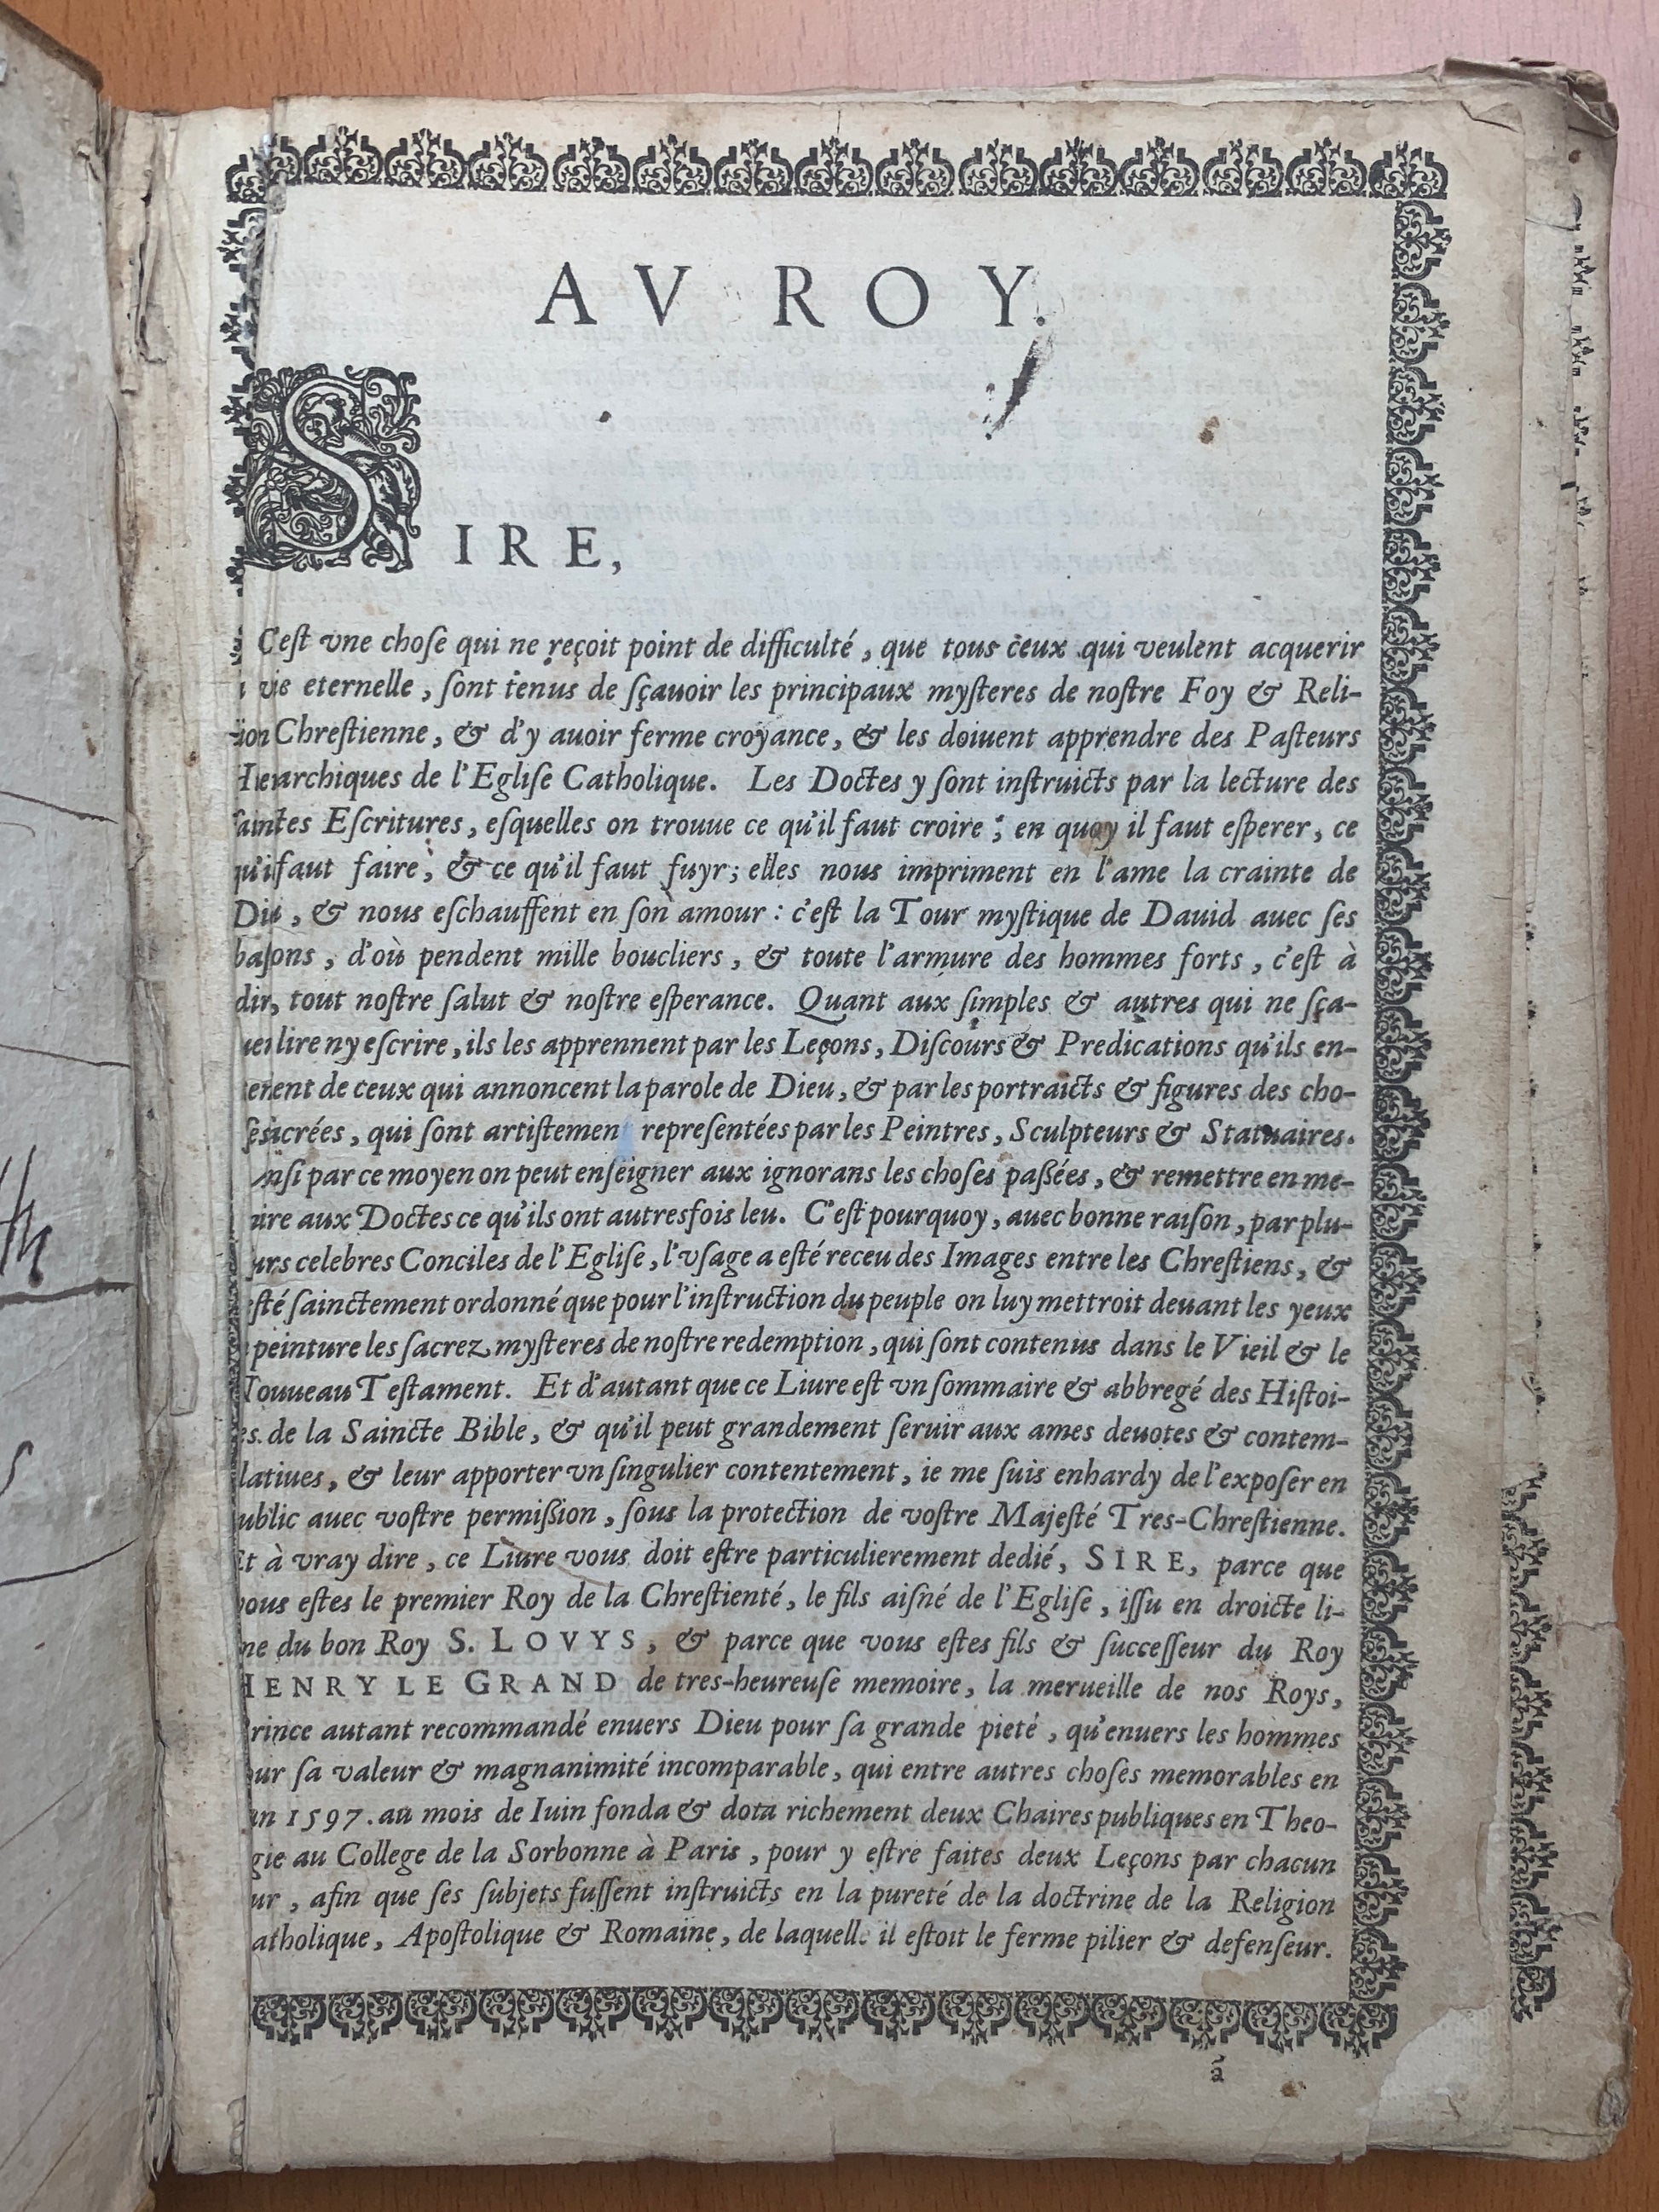 AV ROY.
SIRE,
C'eſt vne choſe qui ne reçoit point de difficulté, que tous ceux qui veulent acquerir
vie eternelle, ſont tenus de ſçauoir les principaux myſteres de noſtre Foy & Reli-
ion Chreſtienne, & d'y auoir ferme croyance, & les doiuent apprendre des Paſteurs
Hierarchiques de l'Egliſe Catholique. Les Doctes y ſont inſtruicts par la lecture des
ſaintes Eſcritures, eſquelles on trouue ce qu'il faut croire; en quoy il faut eſperer, ce
qu'il faut faire, & ce qu'il faut fuyr; elles nous impriment en l'ame la crainte de
Dieu, & nous eſchauffent en ſon amour: c'eſt la Tour myſtique de Dauid auec ſes
baſtions, d'où pendent mille boucliers, & toute l'armure des hommes forts, c'eſt à
dire, tout noſtre ſalut & noſtre eſperance. Quant aux ſimples & autres qui ne ſça-
uent lire ny eſcrire, ils les apprennent par les Leçons, Diſcours & Predications qu'ils en-
tendent de ceux qui annoncent la parole de Dieu, & par les portraicts & figures des cho-
ſes ſacrées, qui ſont artiſtement repreſentées par les Peintres, Sculpteurs & Statuaires.
Ainſi par ce moyen on peut enſeigner aux ignorans les choſes paßées, & remettre en me-
oire aux Doctes ce qu'ils ont autresfois leu. C'eſt pourquoy, auec bonne raiſon, par plu-
urs celebres Conciles de l'Egliſe, l'vſage a eſté receu des Images entre les Chreſtiens, &
eſté ſainctement ordonné que pour l'inſtruction du peuple on luy mettroit deuant les yeux
peinture les ſacrez myſteres de noſtre redemption, qui ſont contenus dans le Vieil & le
Nouueau Teſtament. Et d'autant que ce Liure eſt vn ſommaire & abbregé des Hiſtoi-
es de la Saincte Bible, & qu'il peut grandement ſeruir aux ames deuotes & contem-
latiues, & leur apporter vn ſingulier contentement, ie me ſuis enhardy de l'expoſer en
ublic auec voſtre permißion, ſous la protection de voſtre Majeſté Tres-Chreſtienne.
Et à vray dire, ce Liure vous doit eſtre particulierement dedié, SIRE, parce que
vous eſtes le premier Roy de la Chreſtienté, le fils aiſné de l'Egliſe, iſſu en droicte li-
ne du bon Roy S. LOVYS, & parce que vous eſtes fils & ſucceſſeur du Roy
HENRY LE GRAND de tres-heureuſe memoire, la merueille de nos Roys,
Prince autant recommandé enuers Dieu pour ſa grande pieté, qu'enuers les hommes
our ſa valeur & magnanimité incomparable, qui entre autres choſes memorables en
an 1597. au mois de Iuin fonda & dota richement deux Chaires publiques en Theo-
gie au College de la Sorbonne à Paris, pour y eſtre faites deux Leçons par chacun
ur, afin que ſes ſubjets fuſſent inſtruicts en la pureté de la doctrine de la Religion
atholique, Apoſtolique & Romaine, de laquelle il eſtoit le ferme pilier & defenſeur.
ã